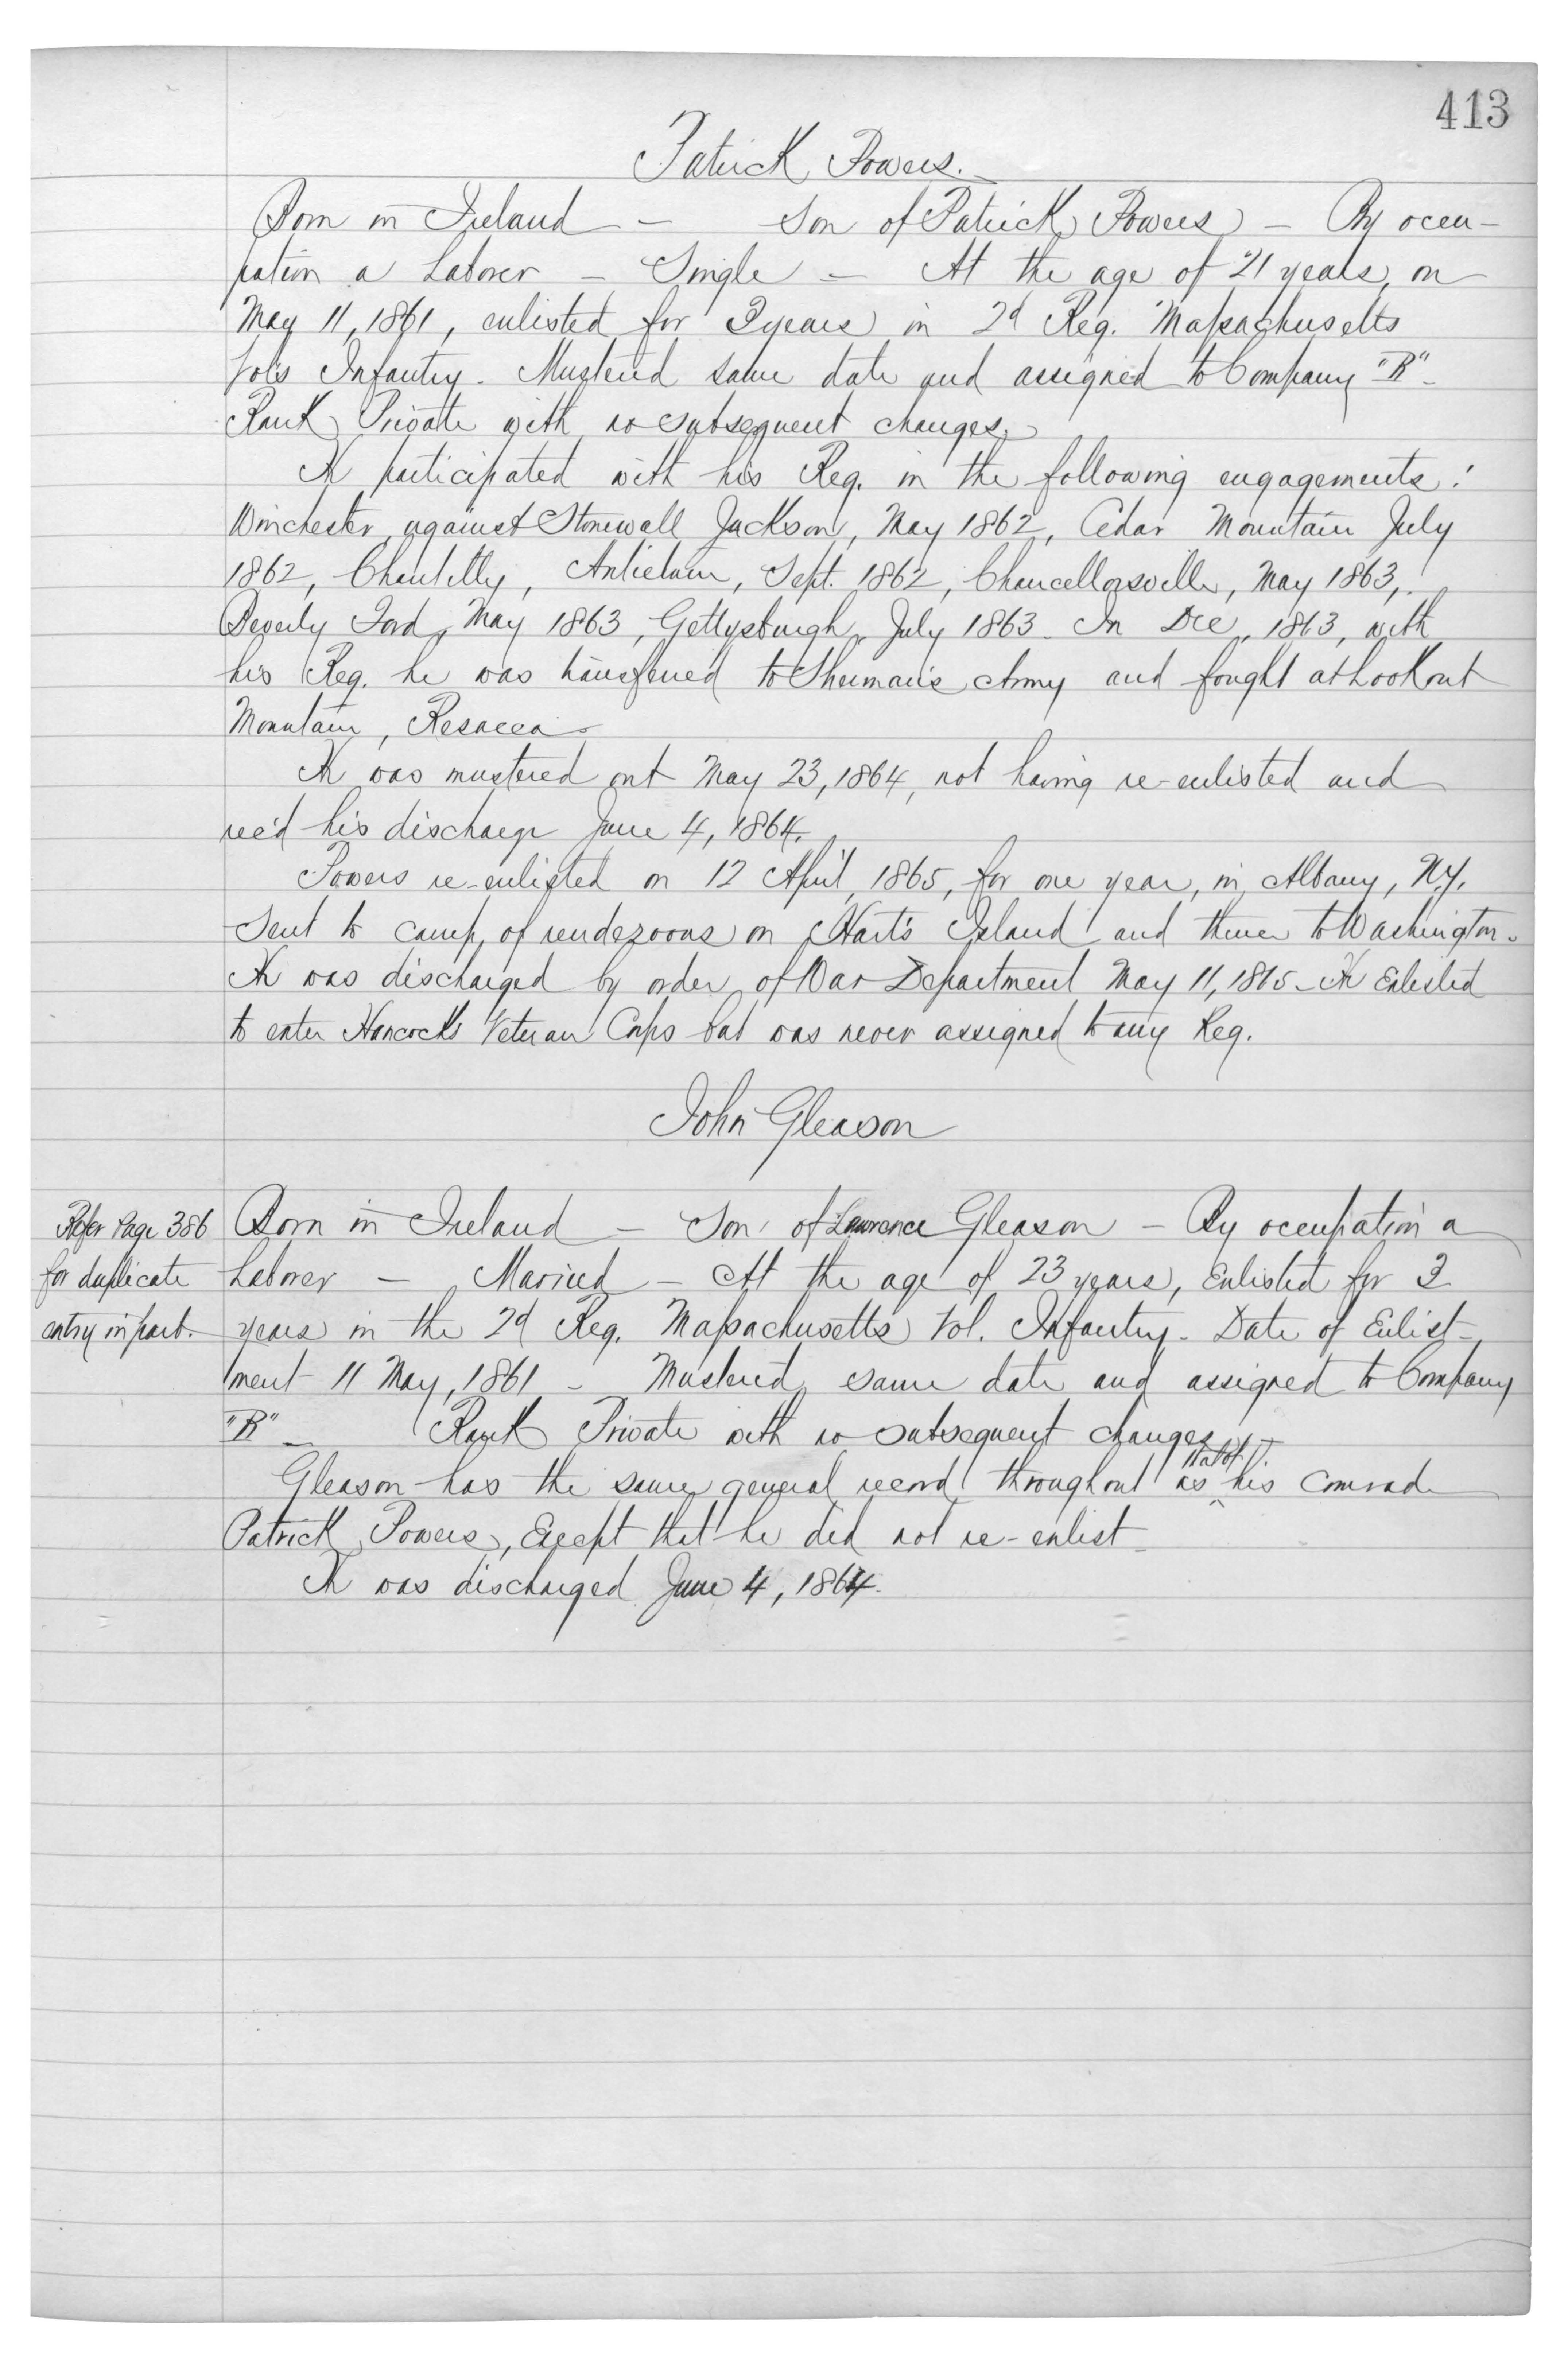 413
Patrick Powers.
Born in Ireland — Son of Patrick Powers — By occu-
pation a Laborer — Single — At the age of 21 years, on
May 11, 1861, enlisted for 3 years in 2d Reg. Massachusetts
Vols Infantry. Mustered same date and assigned to Company "B" -
Rank Private with no subsequent changes.
He participated with his Reg. in the following engagements:
Winchester, against Stonewall Jackson, May 1862, Cedar Mountain July
1862, Chantilly, Antietam, Sept. 1862, Chancellorsville, May 1863,
Beverly Ford, May 1863, Gettysburgh, July 1863. In Dec, 1863, with
his Reg. he was transferred to Sherman's Army and fought at Lookout
Mountain, Resacca.
He was mustered out May 23, 1864, not having re-enlisted and
rec'd his discharge June 4, 1864.
Powers re-enlisted on 12 April, 1865, for one year, in Albany, N.Y.
Sent to camp of rendezvous on Hart's Island and thence to Washington.
He was discharged by order of War Department May 11, 1865 - He Enlisted
to enter Hancock's Veteran Corps but was never assigned to any Reg.
John Gleason
Refer Page 386
for duplicate
entry in part.
Born in Ireland — Son of Lawrence Gleason — By occupation a
Laborer — Married — At the age of 23 years, Enlisted for 3
years in the 2d Reg. Massachusetts Vol. Infantry. Date of Enlist-
ment 11 May, 1861 - Mustered same date and assigned to Company
"B" - Rank Private with no subsequent changes
Gleason has the same general record throughout as that of his comrade
Patrick Powers, Except that he did not re-enlist -
He was discharged June 4, 1864.